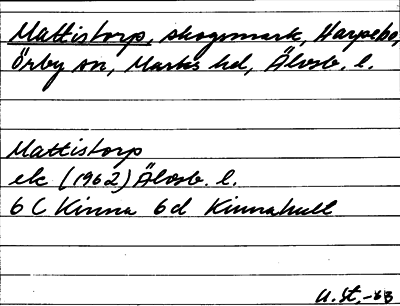 Mattistorp, skogsmark, Harpebo,
Örby sn, Marks hd, Älvsb. l.
Mattistorp
ek (1962) Älvsb. l.
6 C Kinna 6d Kinnahult
U.St.-63